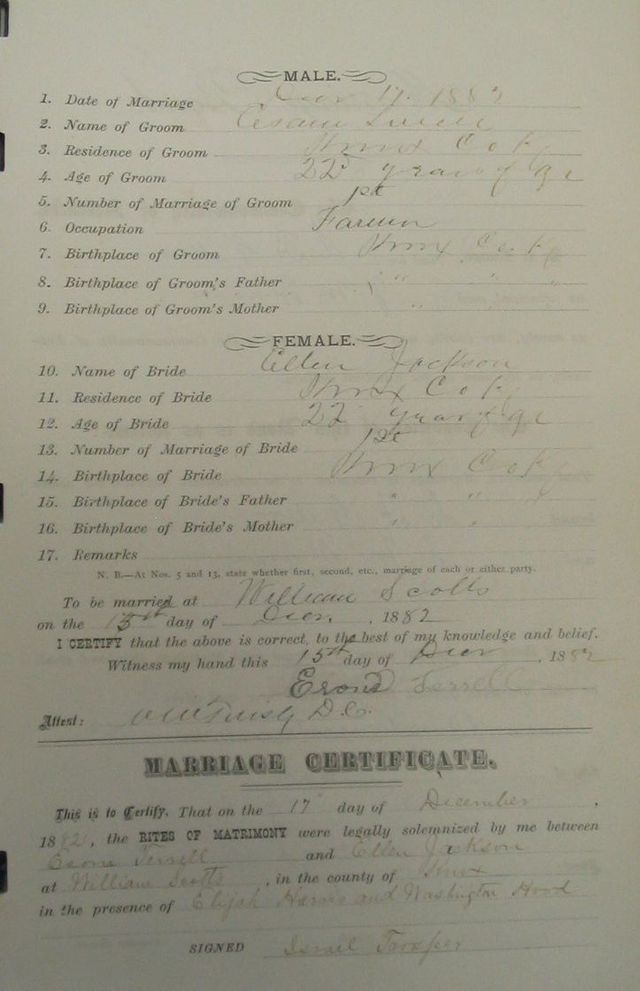 MALE.
1. Date of Marriage 17 1882
2. Name of Groom
3. Residence of Groom Knox Co Ky
4. Age of Groom 22 years of age
5. Number of Marriage of Groom 1st
6. Occupation Farmer
7. Birthplace of Groom Knox Co Ky
8. Birthplace of Groom's Father " " "
9. Birthplace of Groom's Mother " " "
FEMALE.
10. Name of Bride Ellen Jackson
11. Residence of Bride Knox Co Ky
12. Age of Bride 22 years of age
13. Number of Marriage of Bride 1st
14. Birthplace of Bride Knox Co Ky
15. Birthplace of Bride's Father " " "
16. Birthplace of Bride's Mother " " "
17. Remarks
N. B.—At Nos. 5 and 13, state whether first, second, etc., marriage of each or either party.
To be married at William Scotts
on the 15th day of , 1882
I CERTIFY that the above is correct, to the best of my knowledge and belief.
Witness my hand this 15th day of , 1882
Terrell
Attest: D.C.
MARRIAGE CERTIFICATE.
This is to Certify, That on the 17 day of December ,
1882, the RITES OF MATRIMONY were legally solemnized by me between
Terrell and Ellen Jackson
at William Scotts , in the county of Knox
in the presence of Elijah Harris and Washington Hood
SIGNED Israil